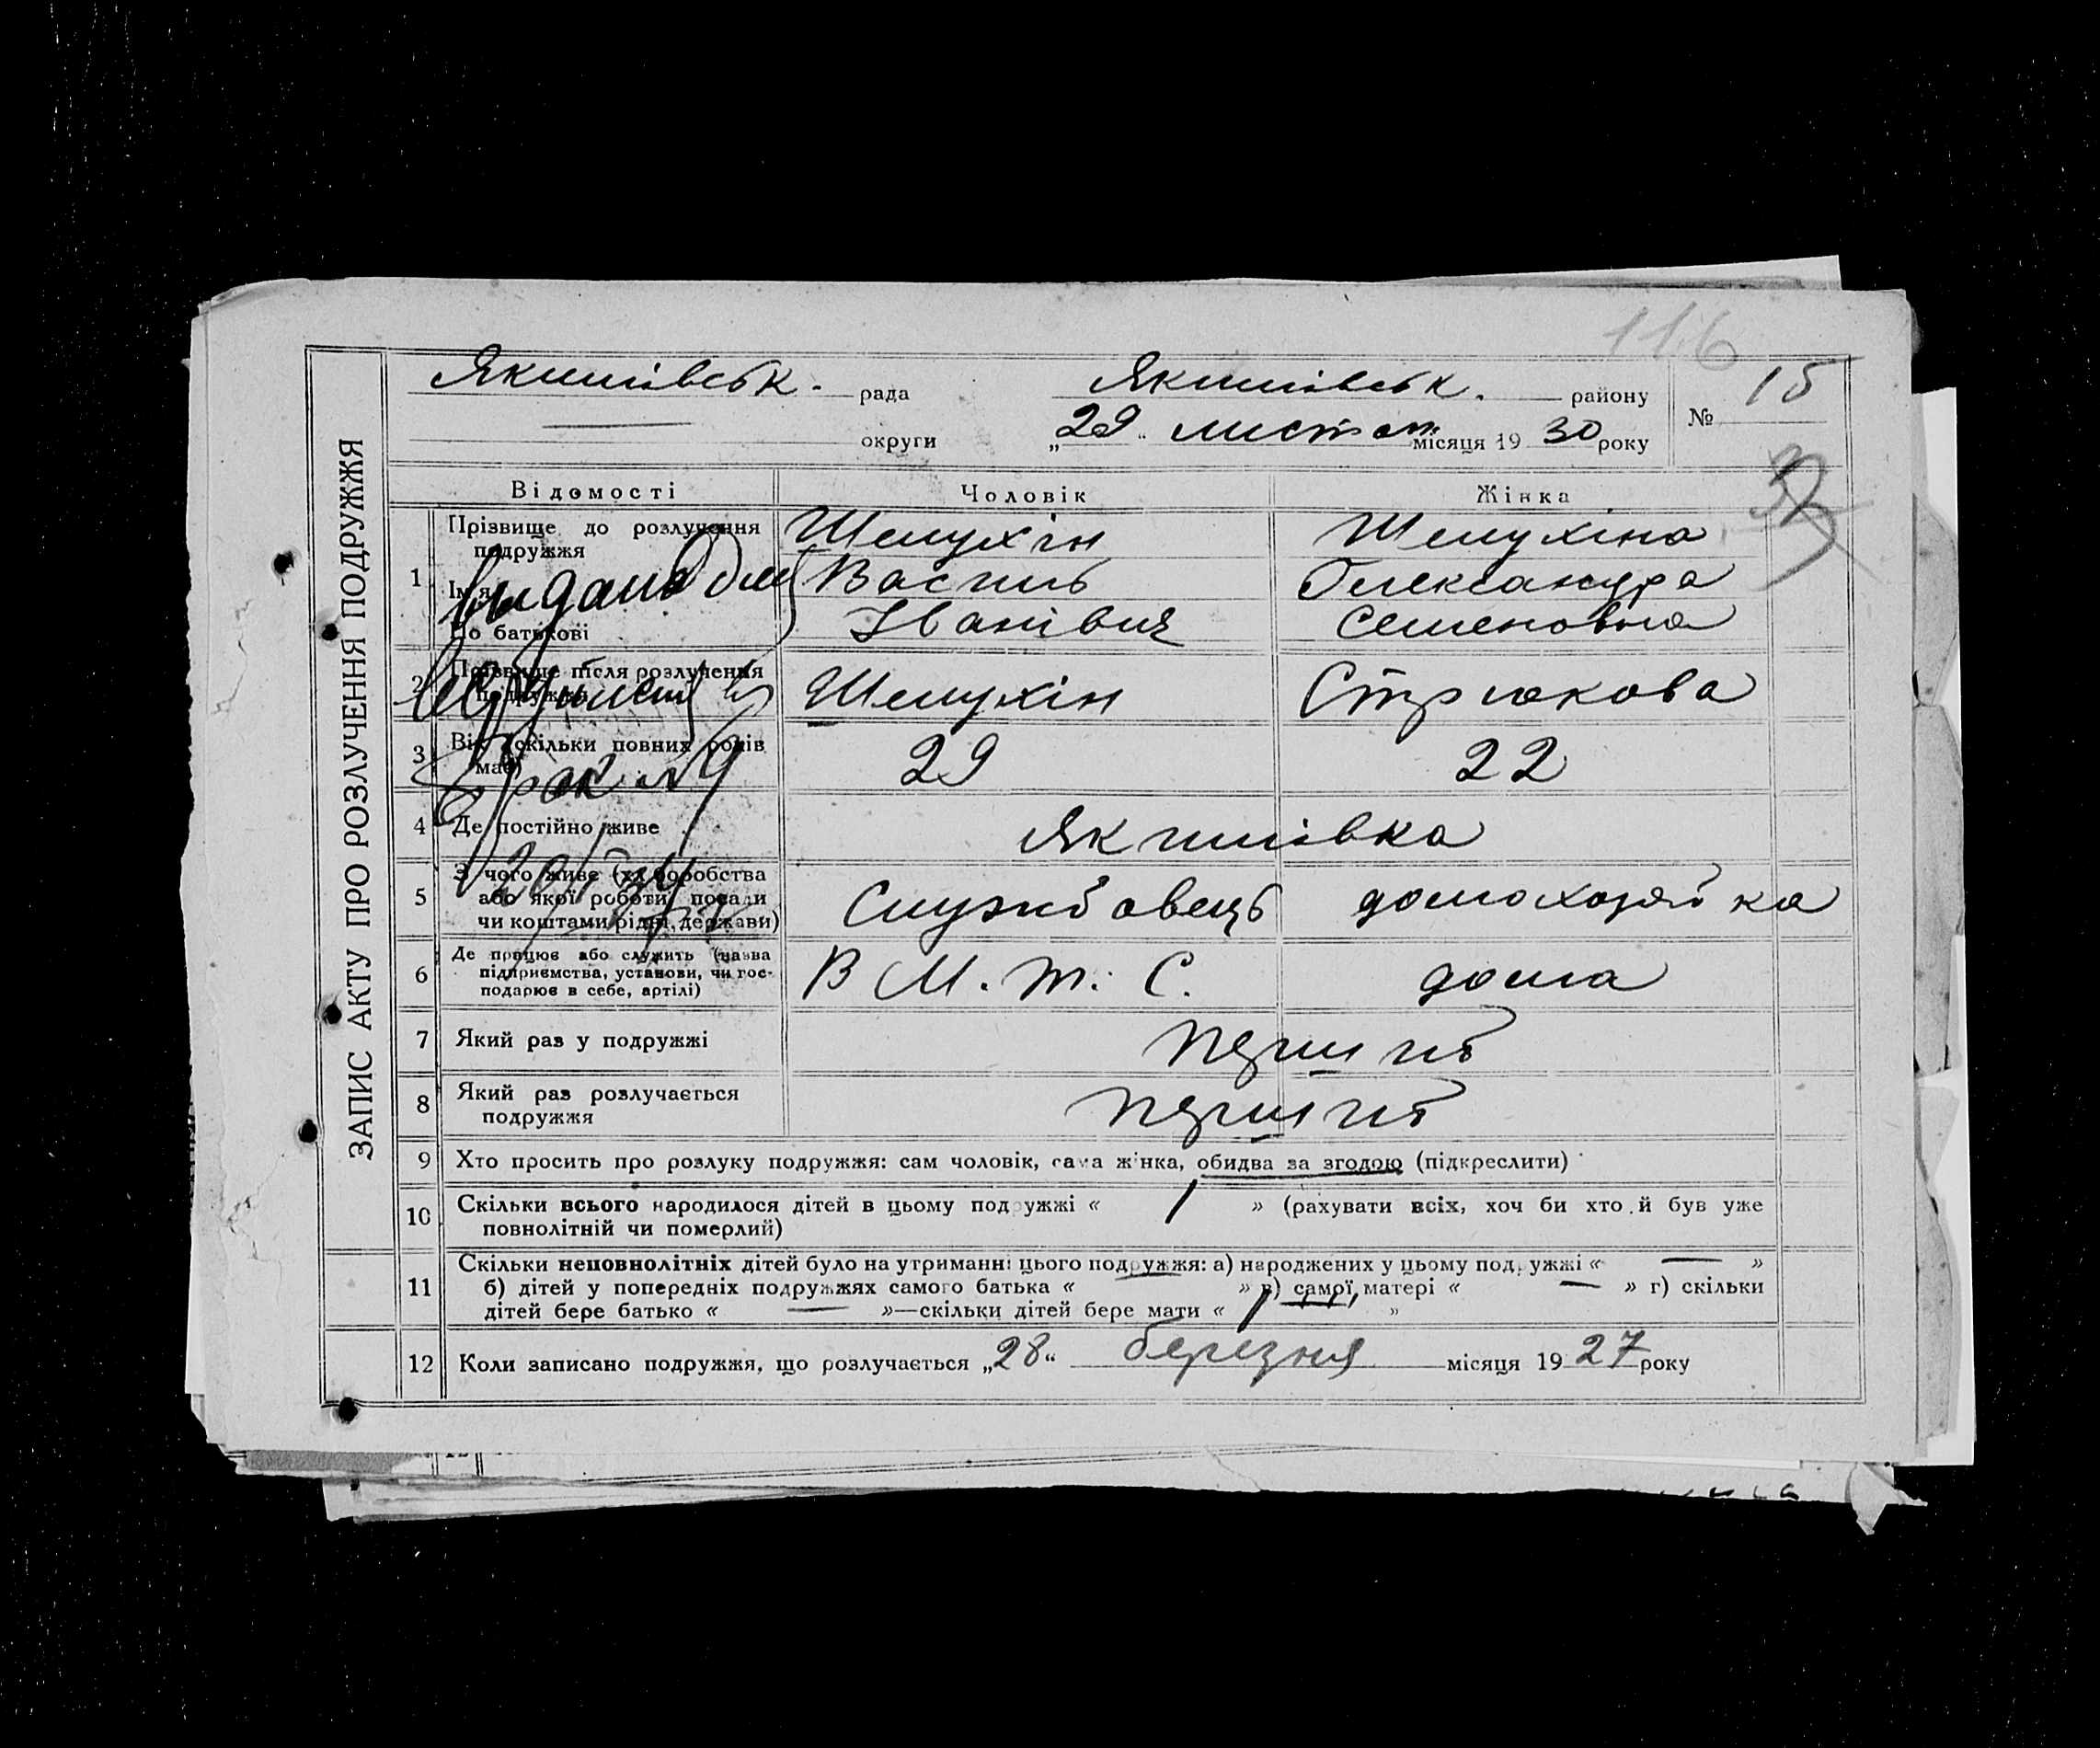 116
ЗАПИС АКТУ ПРО РОЗЛУЧЕННЯ ПОДРУЖЖЯ
Якимівськ. рада Якимівськ. району № 15
округи „29" листоп. місяця 1930 року
Відомості Чоловік Жінка
1 Прізвище до розлучення подружжя Шелухін Шелухіна
Ім'я Василь Олександра
По батькові Іванівич Семеновна
2 Прізвище після розлучення подружжя Шелухін Стрюкова
3 Вік (скільки повних років має) 29 22
4 Де постійно живе Якимівка
5 З чого живе (хліборобства
або якої роботи, посади Службовець домохозяйка
чи коштами рідні, держави)
6 Де працює або служить (назва
підприємства, установи, чи гос- В М. Т. С. дома
подарює в себе, артілі)
7 Який раз у подружжі перший
8 Який раз розлучається
подружжя перший
9 Хто просить про розлуку подружжя: сам чоловік, сама жінка, обидва за згодою (підкреслити)
10 Скільки всього народилося дітей в цьому подружжі « 1 » (рахувати всіх, хоч би хто й був уже
повнолітній чи померлий)
11 Скільки неповнолітніх дітей було на утриманні цього подружжя: а) народжених у цьому подружжі « — »
б) дітей у попередніх подружжях самого батька « » в) самої матері « — » г) скільки
дітей бере батько « — »—скільки дітей бере мати « 1 »
12 Коли записано подружжя, що розлучається „28" березня місяця 1927 року